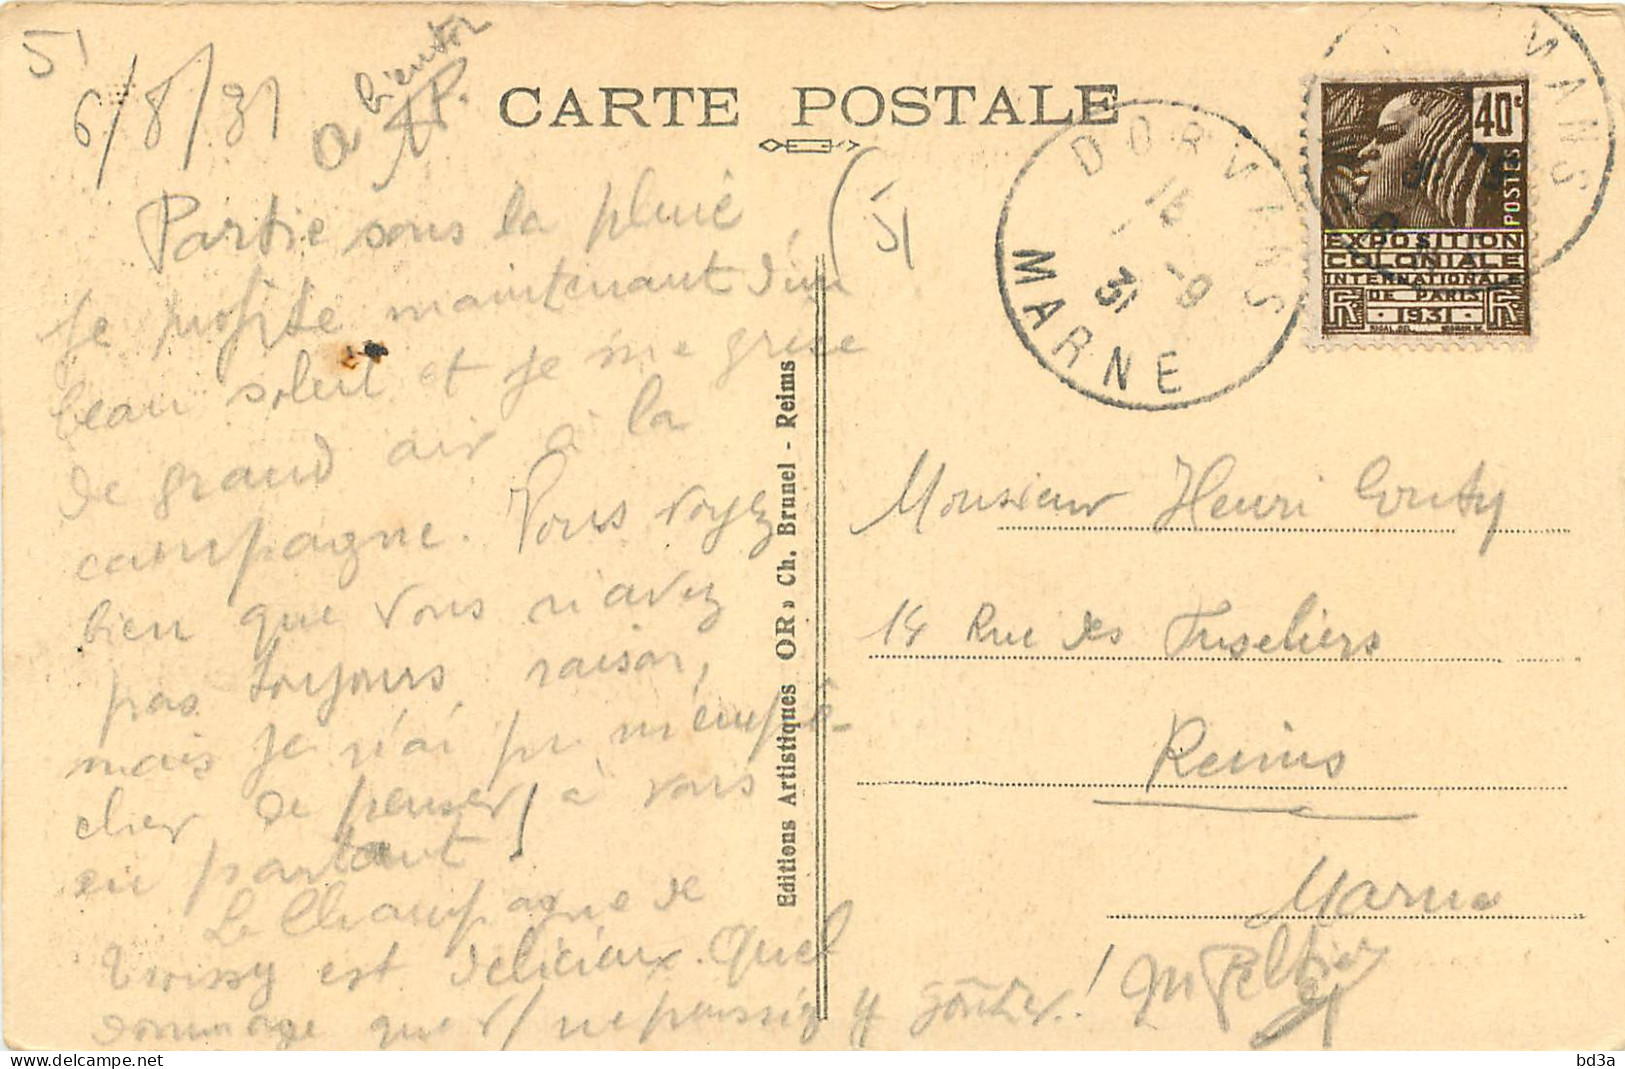 51
6/8/31
a bientot
CARTE POSTALE
(51
Partie sous la pluie,
je profite maintenant d'un
beau soleil et je me grise
de grand air à la
campagne. Vous voyez
bien que vous n'avez
pas toujours raison,
mais je n'ai pu m'empê-
cher de penser à vous
en partant !
Le Champagne de
Troissy est delicieux. Quel
dommage que v/ ne puissiez y goûter !
M Peltier
Editions Artistiques OR » Ch. Brunel - Reims
DORMANS
16
- 9
31
MARNE
40c
POSTES
EXPOSITION
COLONIALE
INTERNATIONALE
DE PARIS
RF · 1931 · RF
Monsieur Henri Couty
14 Rue des Fuseliers
Reims
Marne
bd3a